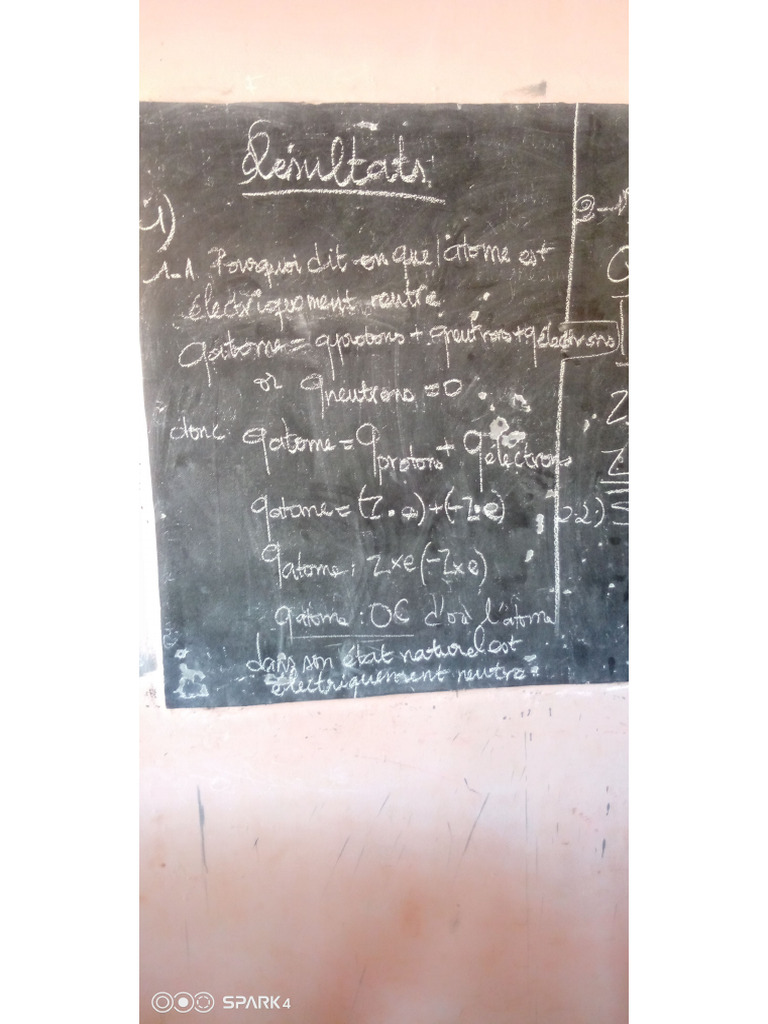 Résultats
1)
1-1. Pourquoi dit-on que l'atome est
électriquement neutre
qatome = qprotons + qneutrons + qélectrons
or qneutrons = 0
donc qatome = qprotons + qélectrons
qatome = (Z.e) + (-Z.e)
qatome : Z×e(-Z×e)
qatome : 0C d'où l'atome
dans son état naturel est
électriquement neutre.
2-1
Q
Z
Z
2.2) S
SPARK 4